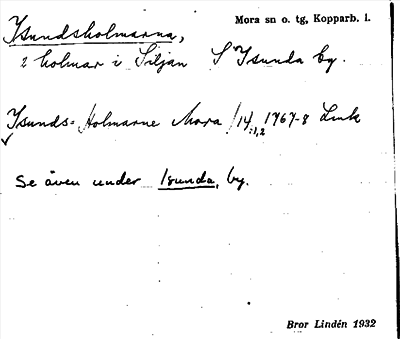 Isundsholmarna,
Mora sn o. tg, Kopparb. l.
2 holmar i Siljan S Isunda by.
Isunds-Holmarne Mora /14:1,2 1767-8 Lmk
Se även under Isunda, by.
Bror Lindén 1932